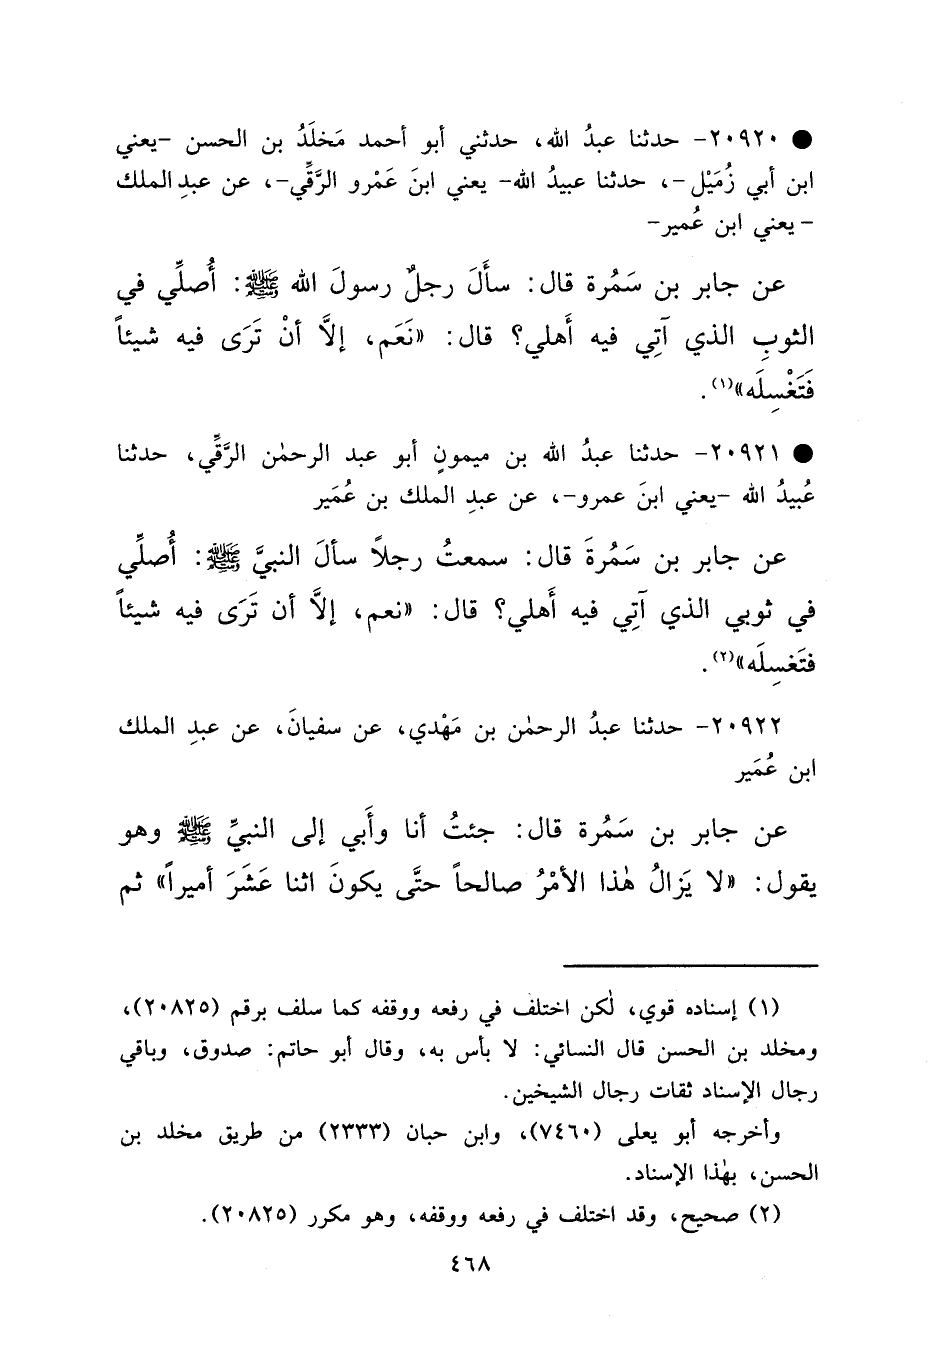 ● ٢٠٩٢٠- حدثنا عبدُ الله، حدثني أبو أحمد مَخلَدُ بن الحسن -يعني
ابن أبي زُمَيْل-، حدثنا عبيدُ الله- يعني ابنَ عَمْرو الرَّقِّي-، عن عبدِ الملك
- يعني ابن عُمير-
عن جابر بن سَمُرة قال: سألَ رجلٌ رسولَ الله ﷺ: أُصلِّي في
الثوبِ الذي آتِي فيه أَهلي؟ قال: «نَعَم، إلاَّ أنْ تَرَى فيه شيئاً
فَتَغْسِلَه»(١).
● ٢٠٩٢١- حدثنا عبدُ الله بن ميمونٍ أبو عبد الرحمٰن الرَّقِّي، حدثنا
عُبيدُ الله -يعني ابنَ عمرو-، عن عبدِ الملك بن عُمَير
عن جابر بن سَمُرةَ قال: سمعتُ رجلاً سألَ النبيَّ ﷺ: أُصلِّي
في ثوبي الذي آتِي فيه أَهلي؟ قال: «نعم، إلاَّ أن تَرَى فيه شيئاً
فتَغسِلَه»(٢).
٢٠٩٢٢- حدثنا عبدُ الرحمٰن بن مَهْدي، عن سفيانَ، عن عبدِ الملك
ابن عُمَير
عن جابر بن سَمُرة قال: جئتُ أنا وأَبي إلى النبيِّ ﷺ وهو
يقول: «لا يَزالُ هٰذا الأمْرُ صالحاً حتَّى يكونَ اثنا عَشَرَ أميراً» ثم
(١) إسناده قوي، لٰكن اختلف في رفعه ووقفه كما سلف برقم (٢٠٨٢٥)،
ومخلد بن الحسن قال النسائي: لا بأس به، وقال أبو حاتم: صدوق، وباقي
رجال الإسناد ثقات رجال الشيخين.
وأخرجه أبو يعلى (٧٤٦٠)، وابن حبان (٢٣٣٣) من طريق مخلد بن
الحسن، بهٰذا الإسناد.
(٢) صحيح، وقد اختلف في رفعه ووقفه، وهو مكرر (٢٠٨٢٥).
٤٦٨